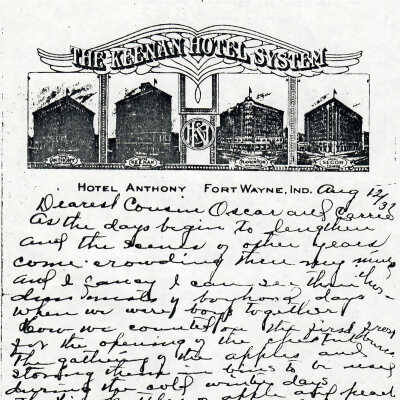 THE KEENAN HOTEL SYSTEM
ANTHONY
KEENAN
SECOR
HOTEL ANTHONY FORT WAYNE, IND. Aug 12/32
Dearest Cousin Oscar and Carrie
As the days begin to lengthen
and the scenes of other years
come crowding thru my mind
and I fancy I can see thru the
dim mists of boyhood days
when we were boys together
how we counted on the first frost
for the opening of the chestnut burrs
The gathering of the apples and
storing them in bins to be used
during the cold winter days
apple and